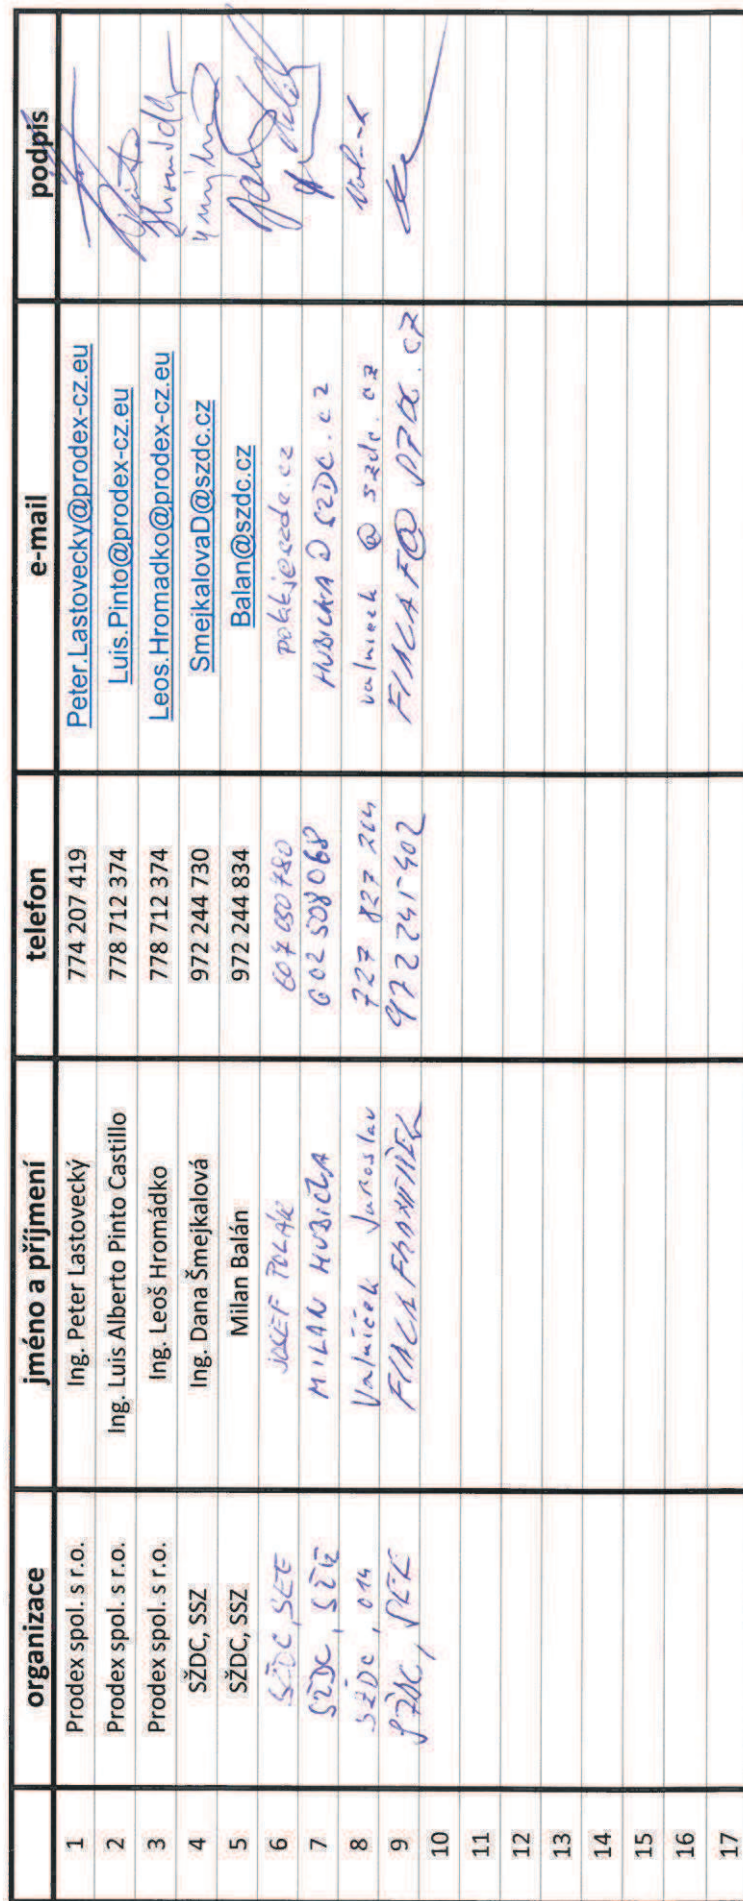 organizace jméno a příjmení telefon e-mail podpis
1 Prodex spol. s r.o. Ing. Peter Lastovecký 774 207 419 Peter.Lastovecky@prodex-cz.eu
2 Prodex spol. s r.o. Ing. Luis Alberto Pinto Castillo 778 712 374 Luis.Pinto@prodex-cz.eu
3 Prodex spol. s r.o. Ing. Leoš Hromádko 778 712 374 Leos.Hromadko@prodex-cz.eu
4 SŽDC, SSZ Ing. Dana Šmejkalová 972 244 730 SmejkalovaD@szdc.cz
5 SŽDC, SSZ Milan Balán 972 244 834 Balan@szdc.cz
6 SŽDC, SEE JOSEF POLÁK 607 050 780
7 SŽDC, MILAN HUBIČKA 602 508 068
8 SŽDC, 014 Valníček Jaroslav 727 827 204 valnicek @ szdc.cz
9 SŽDC, FIALA FRANTIŠEK 972 245 402
10
11
12
13
14
15
16
17